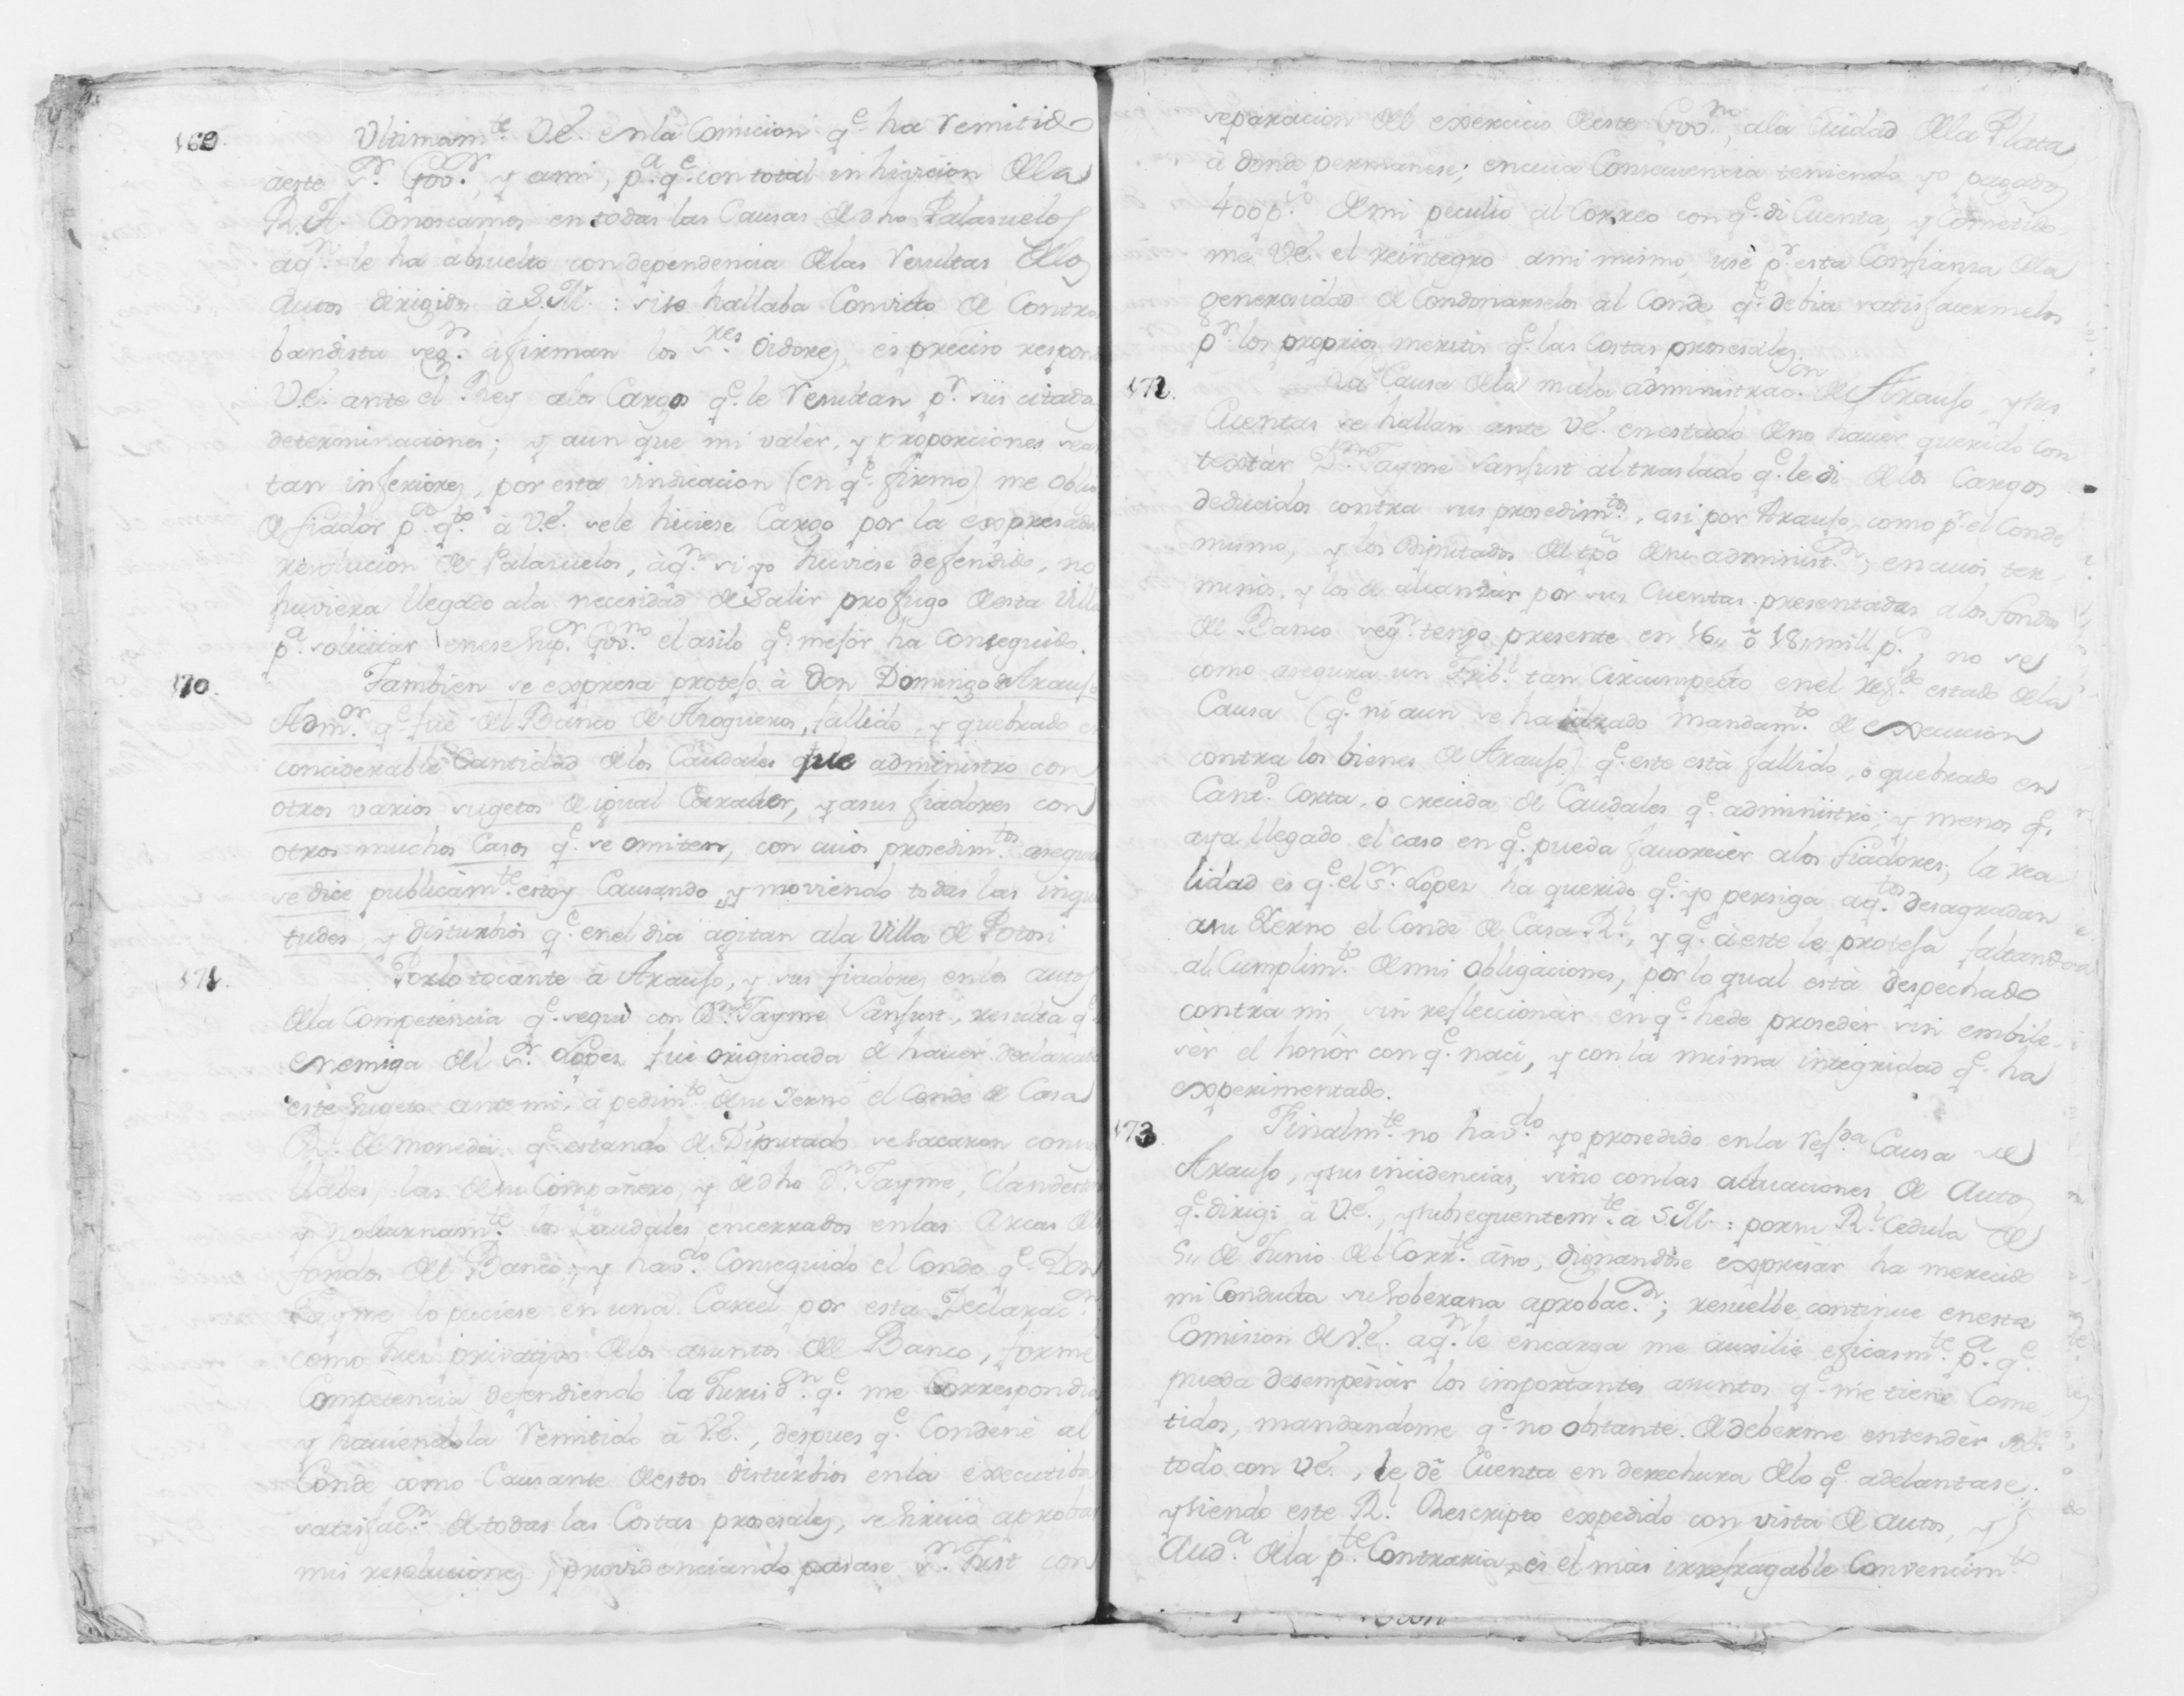 169. Ultimam.te V.e. en la Comicion q.e ha remitido
aeste S.r Gov.r, y ami, p.a q.e con total inhivicion de la
R. A. Conoscamos en todas las Causas de dho Palasuelos
aq.n le ha absuelto con dependencia de las resultas de los
autos dirigidos à S.M.: si se hallaba Convicto de Contra
bandista seg.n afirman los S.res Oidores, es preciso respon
V.e. ante el Rey alos Cargos q.e le resultan p.r sus citadas
determinaciones; y aun que mi valèr, y proporciones sean
tan inferiores, por esta vindicacion (en q.e firmo) me obligo
de fiador p.a q.to à V.e. sele hiciese Cargo por la expresada
resolucion de Palasuelos, àq.n si yo huviese defendido, no
huviera llegado ala necesidad de salir profugo de esta Villa
p.a solicitar en ese Sup.r Gov.no el asilo q.e mejór ha conseguido.
170. Tambien se expresa protejo à Don Domingo de Araujo
Adm.or q.e fue del Banco de Azogueros, fallido, y quebrado en
conciderable Cantidad de los Caudales que administró con
otros varios sugetos de igual Caracter, y asus fiadores con
otros muchos Casos q.e se omiten, con cuios prosedim.tos asegura
se dice publicam.te estoy Causando, y moviendo todas las inquie
tudes, y disturbios q.e en el dia agitan ala Villa de Potosi
171. Por lo tocante à Araujo, y sus fiadores en los autos
de la Competencia q.e seguì con D.n Jayme Sanjust, resulta q.e
enemiga del S.r Lopez fui originada de haver declarado
este sugeto ante mi, à pedim.to de su Yerno el Conde de Casa
R.l de Moneda, q.e estando de Diputado se sacaron con
llabes, las de su Compañero, y de dho D.n Jayme, Clandestina
y nocturnam.te los Caudales encerrados en las Arcas de
fondos del Banco; y hav.do Conseguido el Conde q.e Don
Jayme lo pusiese en una Carcel por esta Declarac.on
como Juez privativo de los asuntos del Banco, formé
Competencia defendiendo la Jurisd.n q.e me Correspondia
y haviendola remitido à V.e., despues q.e Condenè al
Conde como Causante de estos disturbios en la executiba
satisfac.n de todas las Costas prosesales, se sirvió aprobar
mis resoluciones, providenciando pasase S.n Just con
separacion del exercicio de este Gov.no, ala Ciudad de la Plata
à donde permanese; en cuia Consecuencia teniendo yo pagados
400 p.s de mi peculio al Correo con q.e di Cuenta, y Cometido
me V.e. el reintegro ami mismo, usè p.r esta Confianza de la
generosidad de Condonarselos al Conde q.e debia satisfacermelos
p.r los proprios meritos q.e las Costas prosesales.
172. La Causa de la mala administrac.on de Araujo, y sus
Cuentas se hallan ante V.e. en estado de no haver querido con
textàr D.n Jayme Sanjust al traslado q.e le di de los Cargos
deducidos contra sus prosedim.tos, asi por Araujo como p.r el Conde
mismo, y los Diputados del tpõ de su administ.n; en cuios ter
minos, y los de alcanzàr por sus Cuentas presentadas alos fondos
de Banco seg.n tengo presente en 16,, ò 18,, mill p.s, no se
como asegura un Trib.l tan Circunspecto en el ref.do estado de la
Causa (q.e ni aun se ha librado Mandam.to de execucion
contra los bienes de Araujo) q.e este està fallido, ò quebrado en
Cant.d corta, ò crecida de Caudales q.e administrò; y menos q.e
aya llegado el caso en q.e pueda favorecèr alos fiadores; la rea
lidad es q.e el S.r Lopez ha querido q.e yo persiga aq.tos desagradan
asu Yerno el Conde de Casa R.l, y q.e à este le proteja faltando
al Cumplim.to de mis obligaciones, por lo qual està despechado
contra mi, sin refleccionàr en q.e hede prosedèr sin embile
sèr el honòr con q.e naci, y con la misma integridad q.e ha
experimentado.
173. Finalm.te no hav.do yo prosedido en la ref.da Causa de
Araujo, y sus incidencias, sino con las actuaciones de Autos
q.e dirigi à V.e., y subsequentem.te à S.M.: por su R.l Cedula de
5,, de Junio del Corr.te año, dignandose expresàr ha merecido
mi Conducta su soberana aprobac.n; resuelbe continue en esta
Comision de V.e. aq.n le encarga me auxilie eficasm.te p.a q.e
pueda desempeñàr los importantes asuntos q.e me tiene Come
tidos, mandandome q.e no obstante de deberme entendèr
todo con V.e., le dè Cuenta en derechura de lo q.e adelantase.
y siendo este R.l Rescripto expedido con vista de autos, y
Aud.a de la p.te Contraria, es el màs irrefragable Convencim.to